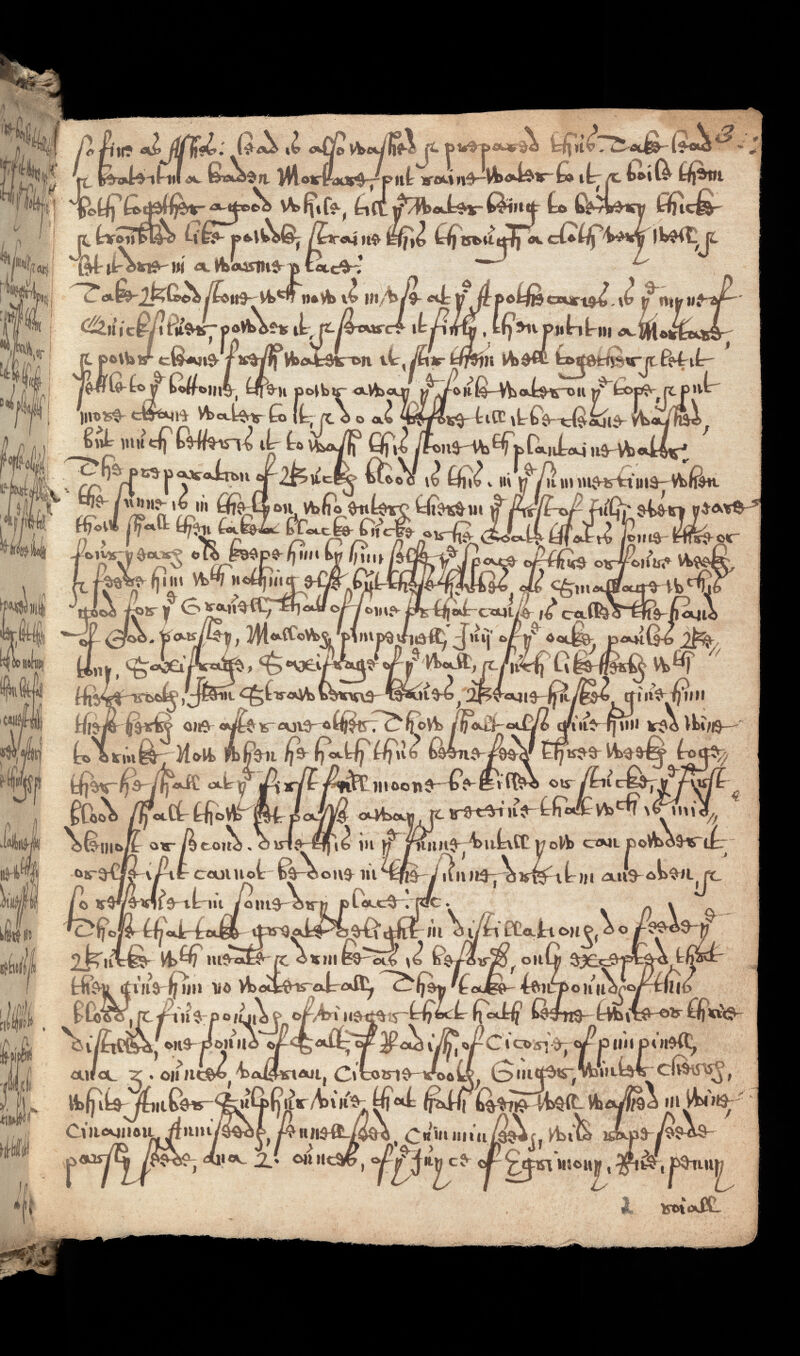 so fine as Ashes: lead is also washed & prepared thus. Take lead 3
& beate it in a brasen Mortare, put raine water to it, & boile them
both together a good while, till yᵉ water being to be very thicke
& troubled like powder, straine this through a cloth very well, &
let it drie in a warme place.
Take Blood stone wᶜʰ now is in use at yᵉ apothecaries, is yᵉ myne of
Quicksilver, powder it, & searce it finly, then put it in a Mortare,
& powr cleane fresh water on it, stir them well together & let it
settle to yᵉ bottome, then powr away yᵉ foule water on yᵉ tope, & put
more cleane water to it, & do as before till it be cleane washed,
but much better is it to wash this stone wᵗʰ plantaine water.
The preparation of Bucks blood is this. in yᵉ summer time, when
the sunne is in the Lyon, who enters therein yᵉ first of July every yeare
thow shall then take a blacke bucke or he Goate that is some three or
foure years old keepe him by him selfe yᵉ space of three or foure weeks,
& feede him wᵗʰ nothing else but these herbes, as Smallage wᶜʰ is
good for yᵉ Gravell, that of some for that cause is called the hand
of God. parsley, Mallows, pimpernell, Iuy of yᵉ oake, paules Be-
tony, Saxifrage, Saxifrage of yᵉ wall, & such like herbs wᵗʰ
these roots, Item Strawberrie leaves, Beane huskes, give him
these herbs one after an other. Thow shalt also give him red wine
to drinke, Now when he hath thus beene feed three weeks toge-
ther he shall at yᵉ first full moone be killed or sticke, yᵉ first
blood shall thow let passe away, & receive that wᶜʰ is mid-
demost or second. drie this in yᵉ sunne, untill yow can powder it,
or else if it cannot be done in the sunne, drie it in ane oven, &
so reserve it in some dry place. &c.
Those that take greate delight in distillations, do feede yᵉ
Bucke wᵗʰ meate & drinke as is before, only excepted, that
they give him no water at all, They take ten pounds of this
blood, & five pounds of vineger that hath beene twice or thrice
distilled, one pound of Salt, of Radish, of Cicorie, of pimpinell,
ana 3. ounces, valerian, Cicorie roots, Ginger, winter cherries,
white Amber Sulphur vive, that hath beene well washed in wine
Cinamon, Anni seeds, fennell seed, Cummin seeds, wild rape seede
parsly seede, ana 2. ounces, of yᵉ Juyce of Egrimony, Rue, penny
1 roiall